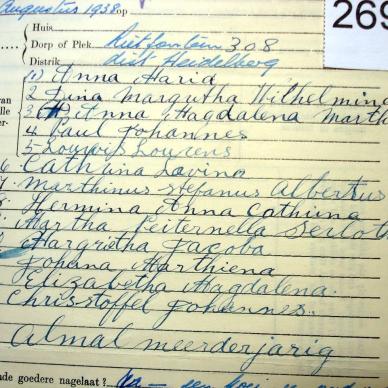 Augustus 1938 op
269
Huis
Dorp of Plek Rietfontein 308
Distrik dist Heidelberg
(1) Anna Maria
2 Margretha Wilhelmina
3 Anna Magdalena Martha
4 Paul Johannes
5 Louwis Lourens
6 Cathrina Lavina
7 Marthinus Stefanus Albertus
8 Hermina Anna Cathrina
Martha Peiternella
Margrietha Jacoba
Johana Marthiena
Elizabetha Magdalena.
Christoffel Johannes.
Almal meerderjarig
nde goedere nagelaat?